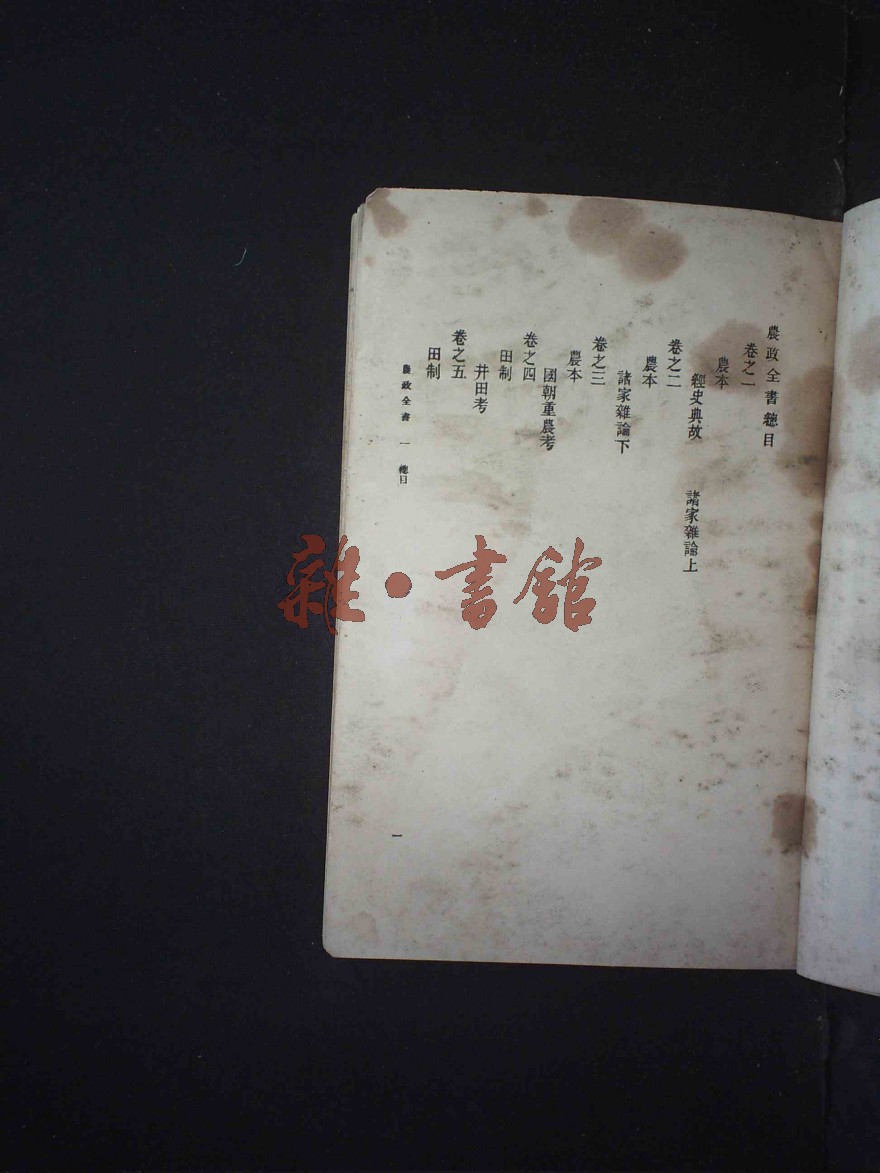 農政全書總目
卷之一
農本
經史典故 諸家雜論上
卷之二
農本
諸家雜論下
卷之三
農本
國朝重農考
卷之四
田制
井田考
卷之五
田制
農政全書 一 總目
一
雜·書館